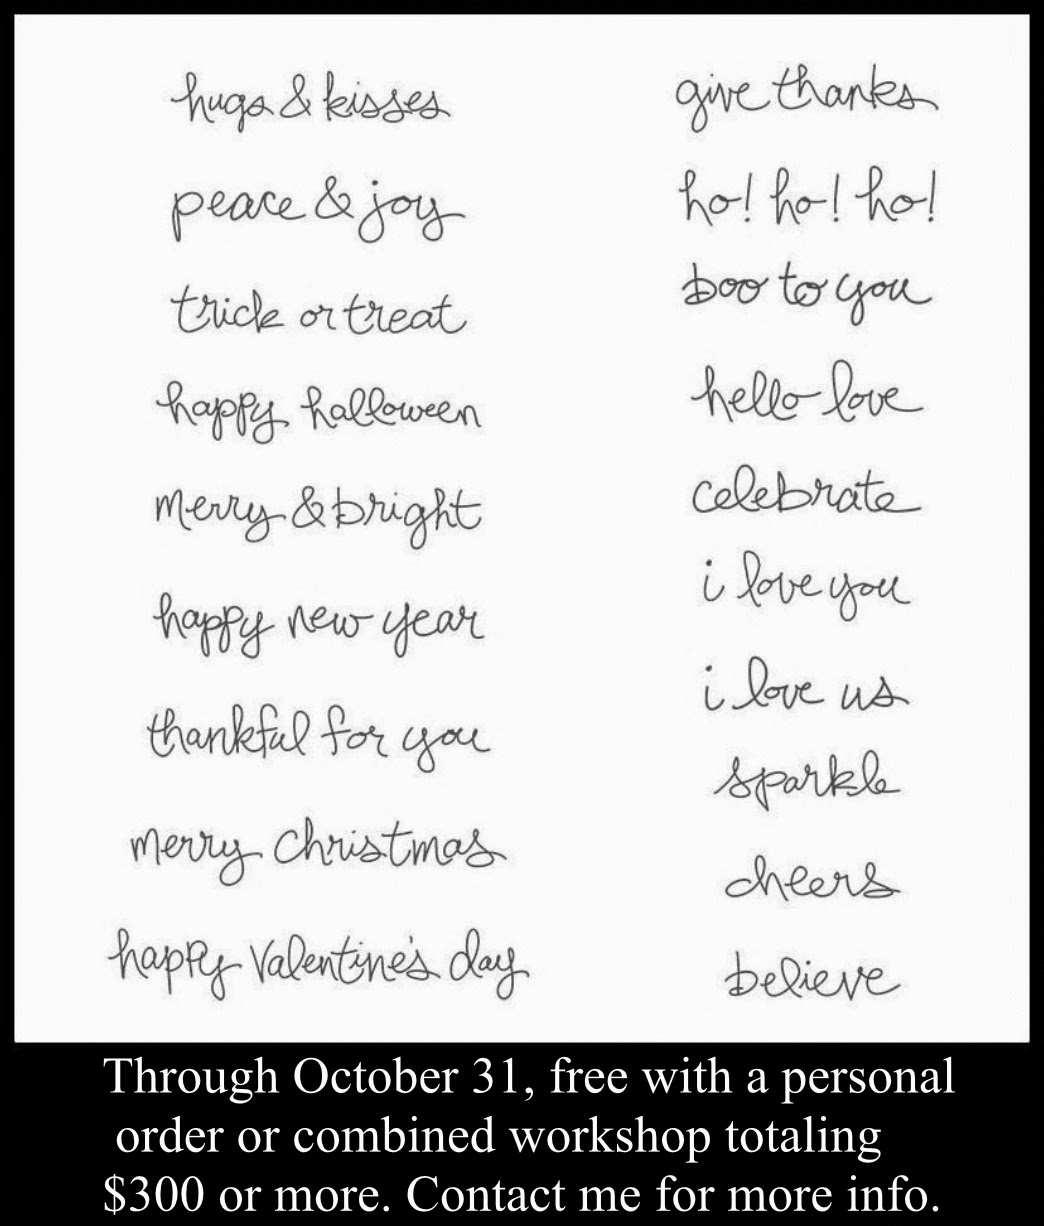 hugs & kisses
peace & joy
trick or treat
happy halloween
merry & bright
happy new year
thankful for you
merry christmas
happy valentine's day
give thanks
ho! ho! ho!
boo to you
hello love
celebrate
i love you
i love us
sparkle
cheers
believe
Through October 31, free with a personal
order or combined workshop totaling
$300 or more. Contact me for more info.